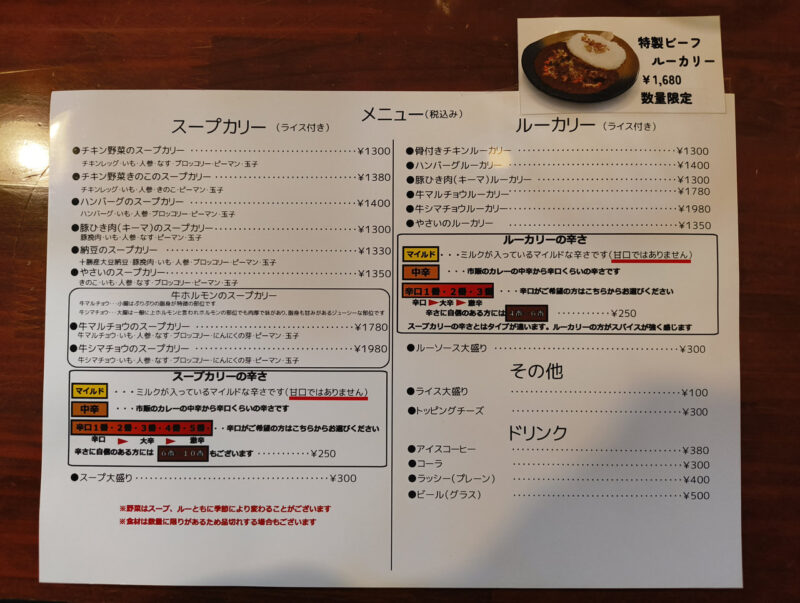 特製ビーフ
ルーカリー
¥1,680
数量限定
メニュー(税込み)
スープカリー (ライス付き)
●チキン野菜のスープカリー ¥1300
チキンレッグ・いも・人参・なす・ブロッコリー・ピーマン・玉子
●チキン野菜きのこのスープカリー ¥1380
チキンレッグ・いも・人参・きのこ・ピーマン・玉子
●ハンバーグのスープカリー ¥1400
ハンバーグ・いも・人参・ブロッコリー・ピーマン・玉子
●豚ひき肉(キーマ)のスープカリー ¥1300
豚挽肉・いも・人参・なす・ブロッコリー・ピーマン・玉子
●納豆のスープカリー ¥1330
十勝産大豆納豆・豚挽肉・いも・人参・ブロッコリー・ピーマン・玉子
●やさいのスープカリー ¥1350
きのこ・いも・人参・なす・ブロッコリー・ピーマン・玉子
牛ホルモンのスープカリー
牛マルチョウ・・小腸はぷりぷりの脂身が特徴の部位です
牛シマチョウ・・大腸は一般に上ホルモンと言われホルモンの部位でも肉厚で味があり、脂身も甘みがあるジューシーな部位です
●牛マルチョウのスープカリー ¥1780
牛マルチョウ・いも・人参・なす・ブロッコリー・にんにくの芽・ピーマン・玉子
●牛シマチョウのスープカリー ¥1980
牛シマチョウ・いも・人参・なす・ブロッコリー・にんにくの芽・ピーマン・玉子
スープカリーの辛さ
マイルド ・・・ミルクが入っているマイルドな辛さです(甘口ではありません)
中辛 ・・・市販のカレーの中辛から辛口くらいの辛さです
辛口1番・2番・3番・4番・5番・ ・・辛口がご希望の方はこちらからお選びください
辛口 ▶ 大辛 ▶ 激辛
辛さに自信のある方には 6番 10番 もございます ¥250
●スープ大盛り ¥300
※野菜はスープ、ルーともに季節により変わることがございます
※食材は数量に限りがあるため品切れする場合もございます
ルーカリー (ライス付き)
●骨付きチキンルーカリー ¥1300
●ハンバーグルーカリー ¥1400
●豚ひき肉(キーマ)ルーカリー ¥1300
●牛マルチョウルーカリー ¥1780
●牛シマチョウルーカリー ¥1980
●やさいのルーカリー ¥1350
ルーカリーの辛さ
マイルド ・・・ミルクが入っているマイルドな辛さです(甘口ではありません)
中辛 ・・・市販のカレーの中辛から辛口くらいの辛さです
辛口1番・2番・3番 ・・・辛口がご希望の方はこちらからお選びください
辛口 ▶ 大辛 ▶ 激辛
辛さに自信のある方には 4番 6番 ¥250
スープカリーの辛さとはタイプが違います。ルーカリーの方がスパイスが強く感じます
●ルーソース大盛り ¥300
その他
●ライス大盛り ¥100
●トッピングチーズ ¥300
ドリンク
●アイスコーヒー ¥380
●コーラ ¥300
●ラッシー(プレーン) ¥400
●ビール(グラス) ¥500